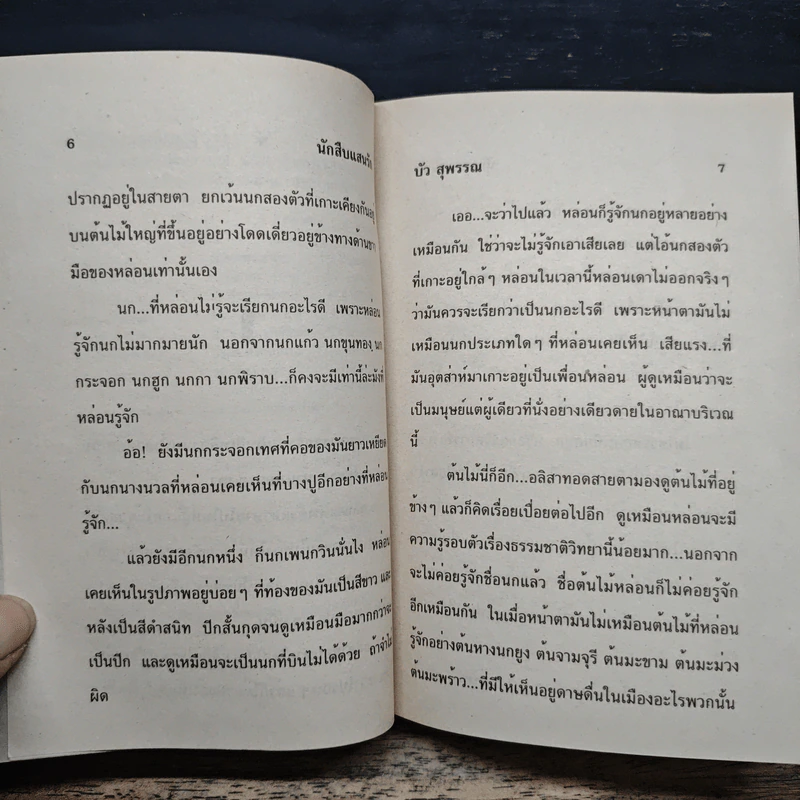 6
นักสืบแสนรัก
ปรากฏอยู่ในสายตา ยกเว้นนกสองตัวที่เกาะเคียงกันอยู่
บนต้นไม้ใหญ่ที่ขึ้นอยู่อย่างโดดเดี่ยวอยู่ข้างทางด้านขวา
มือของหล่อนเท่านั้นเอง
นก...ที่หล่อนไม่รู้จะเรียกนกอะไรดี เพราะหล่อน
รู้จักนกไม่มากมายนัก นอกจากนกแก้ว นกขุนทอง นก
กระจอก นกฮูก นกกา นกพิราบ...ก็คงจะมีเท่านี้ละมังที่
หล่อนรู้จัก
อ้อ! ยังมีนกกระจอกเทศที่คอของมันยาวเหยียด
กับนกนางนวลที่หล่อนเคยเห็นที่บางปูอีกอย่างที่หล่อน
รู้จัก...
แล้วยังมีอีกนกหนึ่ง ก็นกเพนกวินนั่นไง หล่อน
เคยเห็นในรูปภาพอยู่บ่อยๆ ที่ท้องของมันเป็นสีขาว และ
หลังเป็นสีดำสนิท ปีกสั้นกุดจนดูเหมือนมือมากกว่าจะ
เป็นปีก และดูเหมือนจะเป็นนกที่บินไม่ได้ด้วย ถ้าจำไม่
ผิด
บัว สุพรรณ
7
เออ...จะว่าไปแล้ว หล่อนก็รู้จักนกอยู่หลายอย่าง
เหมือนกัน ใช่ว่าจะไม่รู้จักเอาเสียเลย แต่ไอ้นกสองตัว
ที่เกาะอยู่ใกล้ๆ หล่อนในเวลานี้หล่อนเดาไม่ออกจริงๆ
ว่ามันควรจะเรียกว่าเป็นนกอะไรดี เพราะหน้าตามันไม่
เหมือนนกประเภทใดๆ ที่หล่อนเคยเห็น เสียแรง...ที่
มันอุตส่าห์มาเกาะอยู่เป็นเพื่อนหล่อน ผู้ดูเหมือนว่าจะ
เป็นมนุษย์แต่ผู้เดียวที่นั่งอย่างเดียวดายในอาณาบริเวณ
นี้
ต้นไม้นี่ก็อีก...อลิสาทอดสายตามองดูต้นไม้ที่อยู่
ข้างๆ แล้วก็คิดเรื่อยเปื่อยต่อไปอีก ดูเหมือนหล่อนจะมี
ความรู้รอบตัวเรื่องธรรมชาติวิทยานี้น้อยมาก...นอกจาก
จะไม่ค่อยรู้จักชื่อนกแล้ว ชื่อต้นไม้หล่อนก็ไม่ค่อยรู้จัก
อีกเหมือนกัน ในเมื่อหน้าตามันไม่เหมือนต้นไม้ที่หล่อน
รู้จักอย่างต้นหางนกยูง ต้นจามจุรี ต้นมะขาม ต้นมะม่วง
ต้นมะพร้าว...ที่มีให้เห็นอยู่ดาษดื่นในเมืองอะไรพวกนั้น